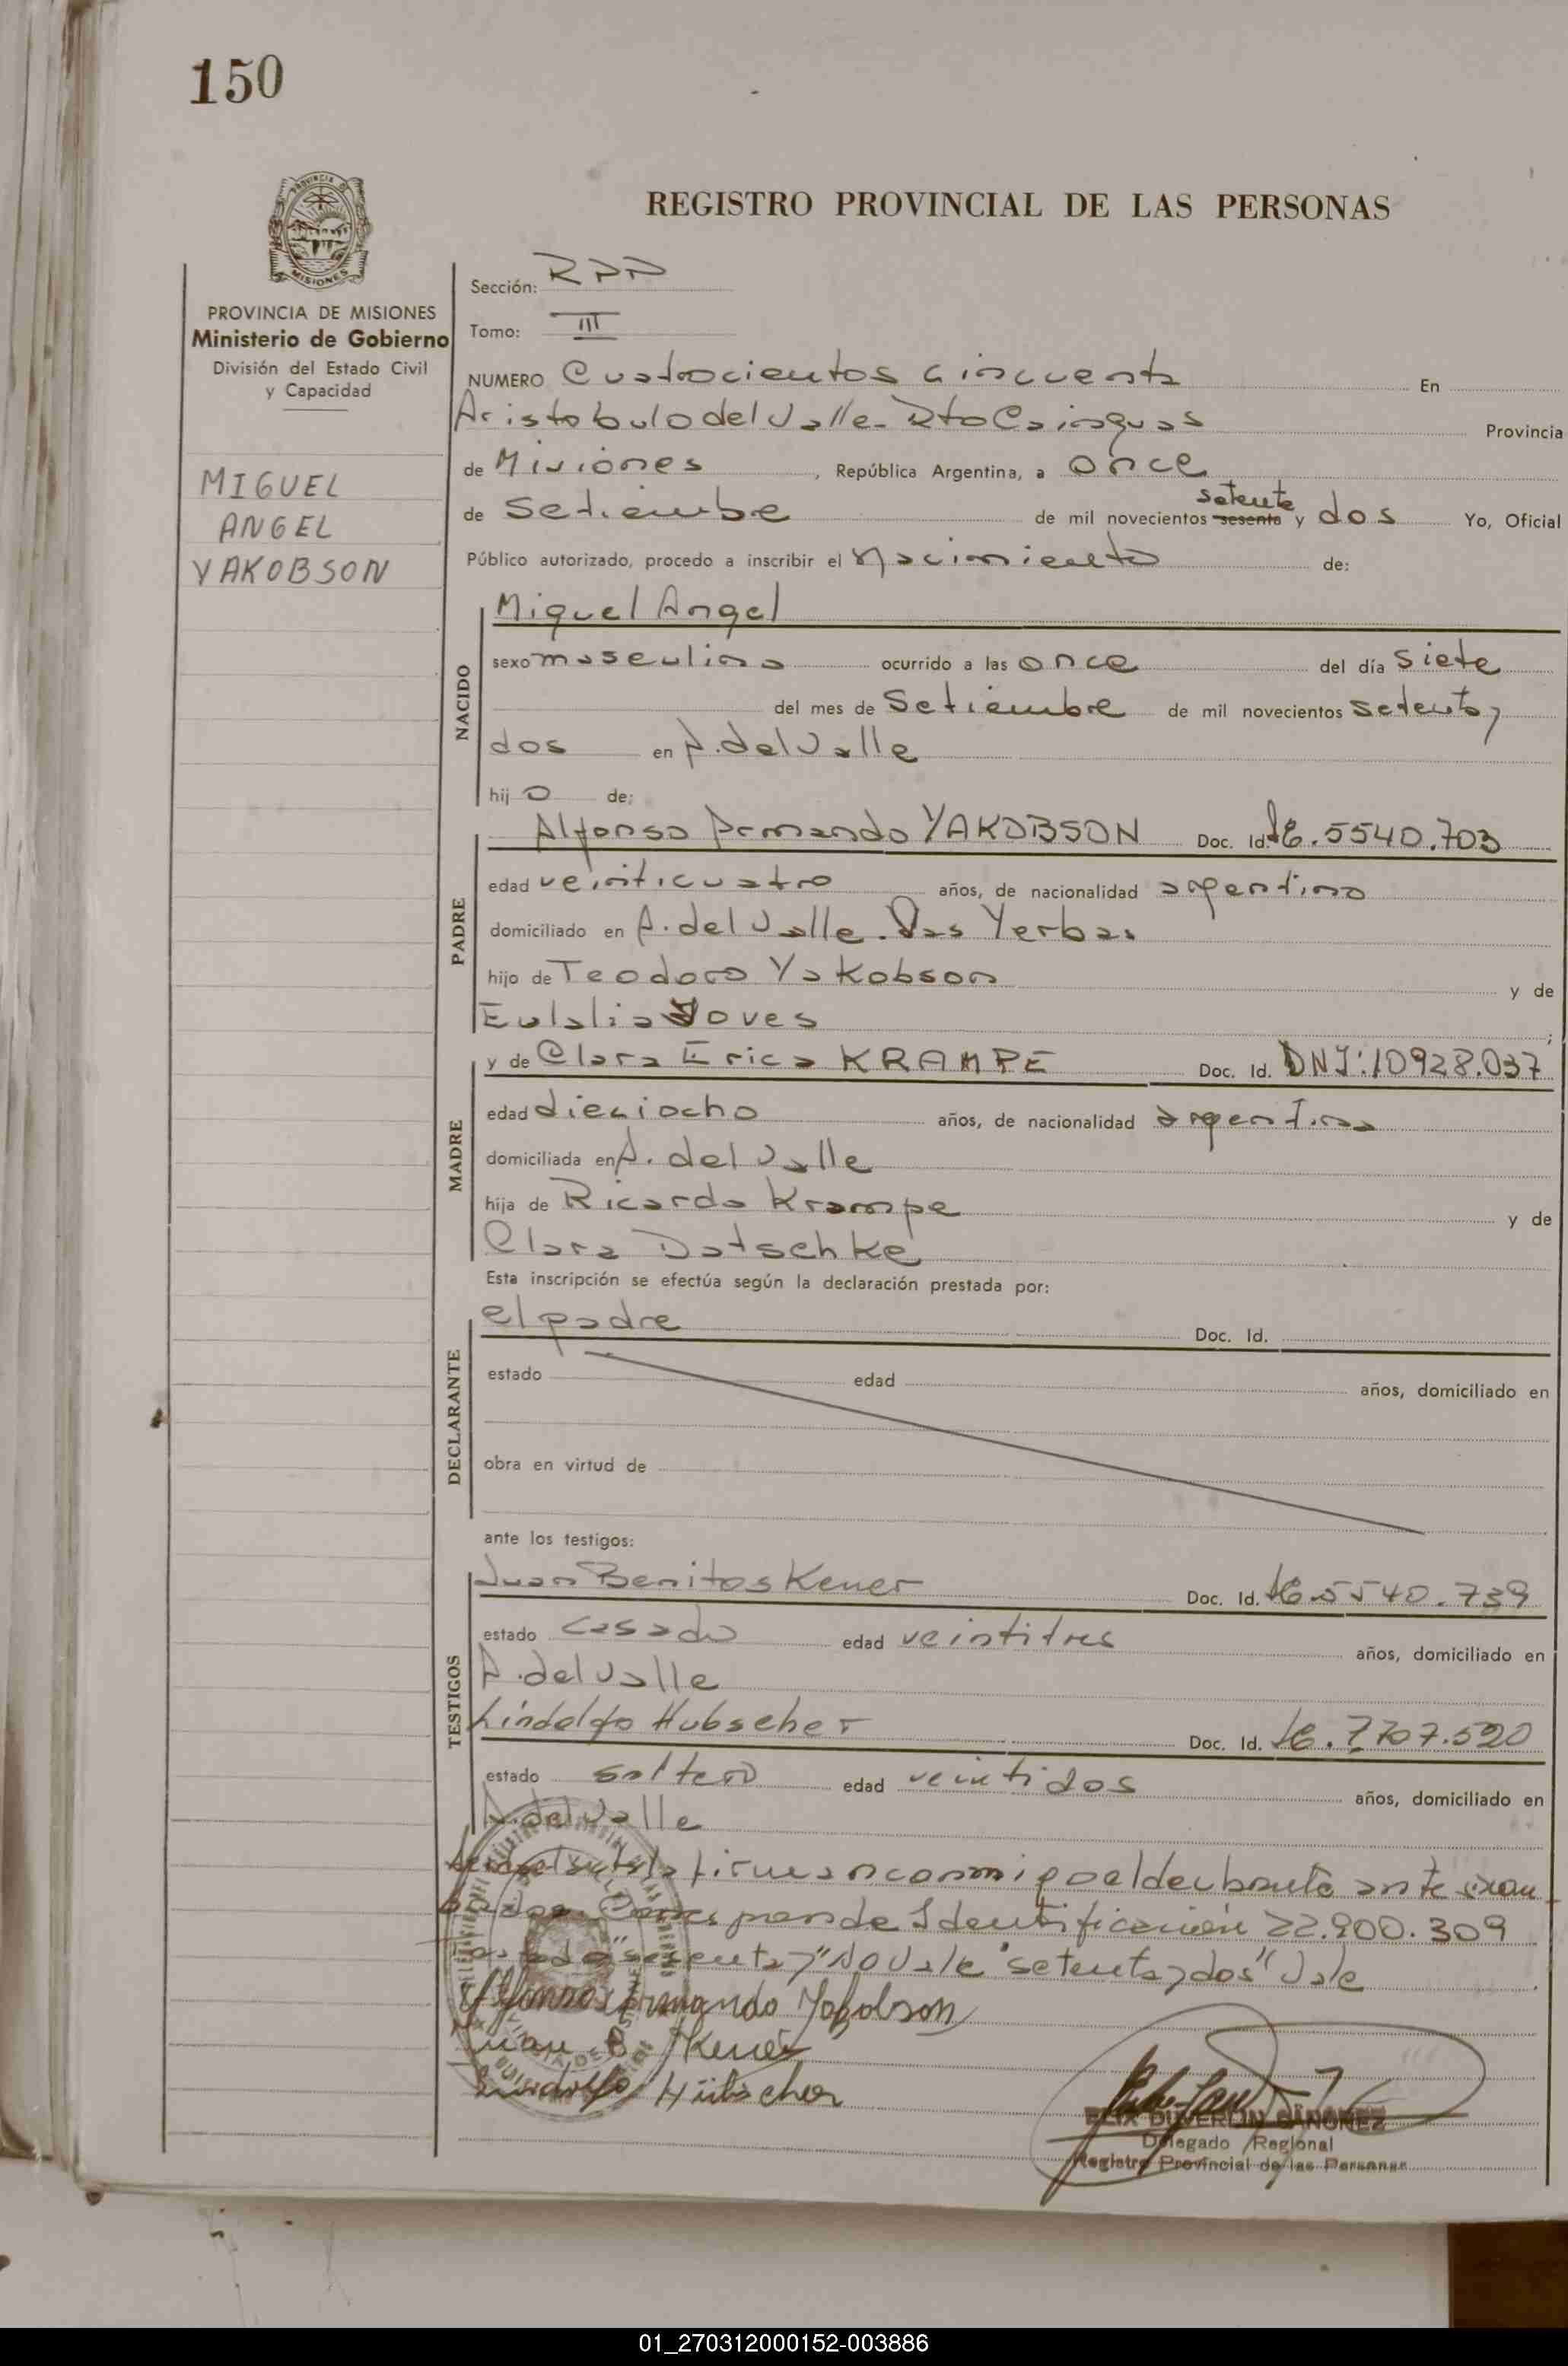 150
REGISTRO PROVINCIAL DE LAS PERSONAS
PROVINCIA DE MISIONES
Ministerio de Gobierno
División del Estado Civil
y Capacidad
MIGUEL
ANGEL
YAKOBSON
Sección: RPP
Tomo: III
NUMERO Cuatrocientos cincuenta En
Aristobulo del Valle - Dto Cainguas Provincia
de Misiones, República Argentina, a once
setenta
de Setiembre de mil novecientos sesenta y dos Yo, Oficial
Público autorizado, procedo a inscribir el Nacimiento de:
NACIDO
Miguel Angel
sexo masculino ocurrido a las once del día siete
del mes de Setiembre de mil novecientos setenta y
dos en A. del Valle
hijo de:
PADRE
Alfonso Armando YAKOBSON Doc. Id. LE. 5540.703
edad veinticuatro años, de nacionalidad argentino
domiciliado en A. del Valle. Yerbas
hijo de Teodoro Yakobson y de
Eulalia ;
MADRE
y de Clara Erica KRAMPE Doc. Id. DNI: 10928.037
edad dieciocho años, de nacionalidad argentina
domiciliada en A. del Valle
hija de Ricardo Krampe y de
Clara Datschke
Esta inscripción se efectúa según la declaración prestada por:
DECLARANTE
el padre Doc. Id.
estado edad años, domiciliado en
obra en virtud de
ante los testigos:
TESTIGOS
Juan Benitos Kener Doc. Id. LE. 5540.739
estado casado edad veintitres años, domiciliado en
A. del Valle
Lindolfo Hubscher Doc. Id. LE. 7.707.520
estado soltero edad veintidos años, domiciliado en
A. del Valle
Leida el acta la firman conmigo el declarante ante
Corresponde Identificación 22.900.309
Testado "sesenta y" No Vale "setenta y dos" Vale
Alfonso Armando Yakobson
Juan B. Kener
Lindolfo Hübscher
FELIX DUVERLIN SANCHEZ
Delegado Regional
Registro Provincial de las Personas
01_270312000152-003886